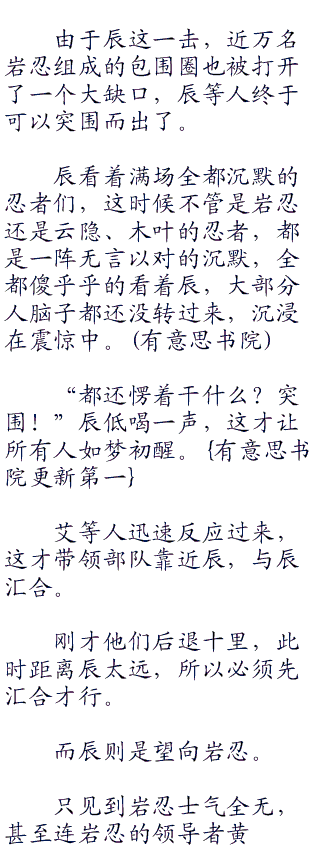 由于辰这一击，近万名
岩忍组成的包围圈也被打开
了一个大缺口，辰等人终于
可以突围而出了。
辰看着满场全都沉默的
忍者们，这时候不管是岩忍
还是云隐、木叶的忍者，都
是一阵无言以对的沉默，全
都傻乎乎的看着辰，大部分
人脑子都还没转过来，沉浸
在震惊中。(有意思书院)
“都还愣着干什么？突
围！”辰低喝一声，这才让
所有人如梦初醒。{有意思书
院更新第一}
艾等人迅速反应过来，
这才带领部队靠近辰，与辰
汇合。
刚才他们后退十里，此
时距离辰太远，所以必须先
汇合才行。
而辰则是望向岩忍。
只见到岩忍士气全无，
甚至连岩忍的领导者黄